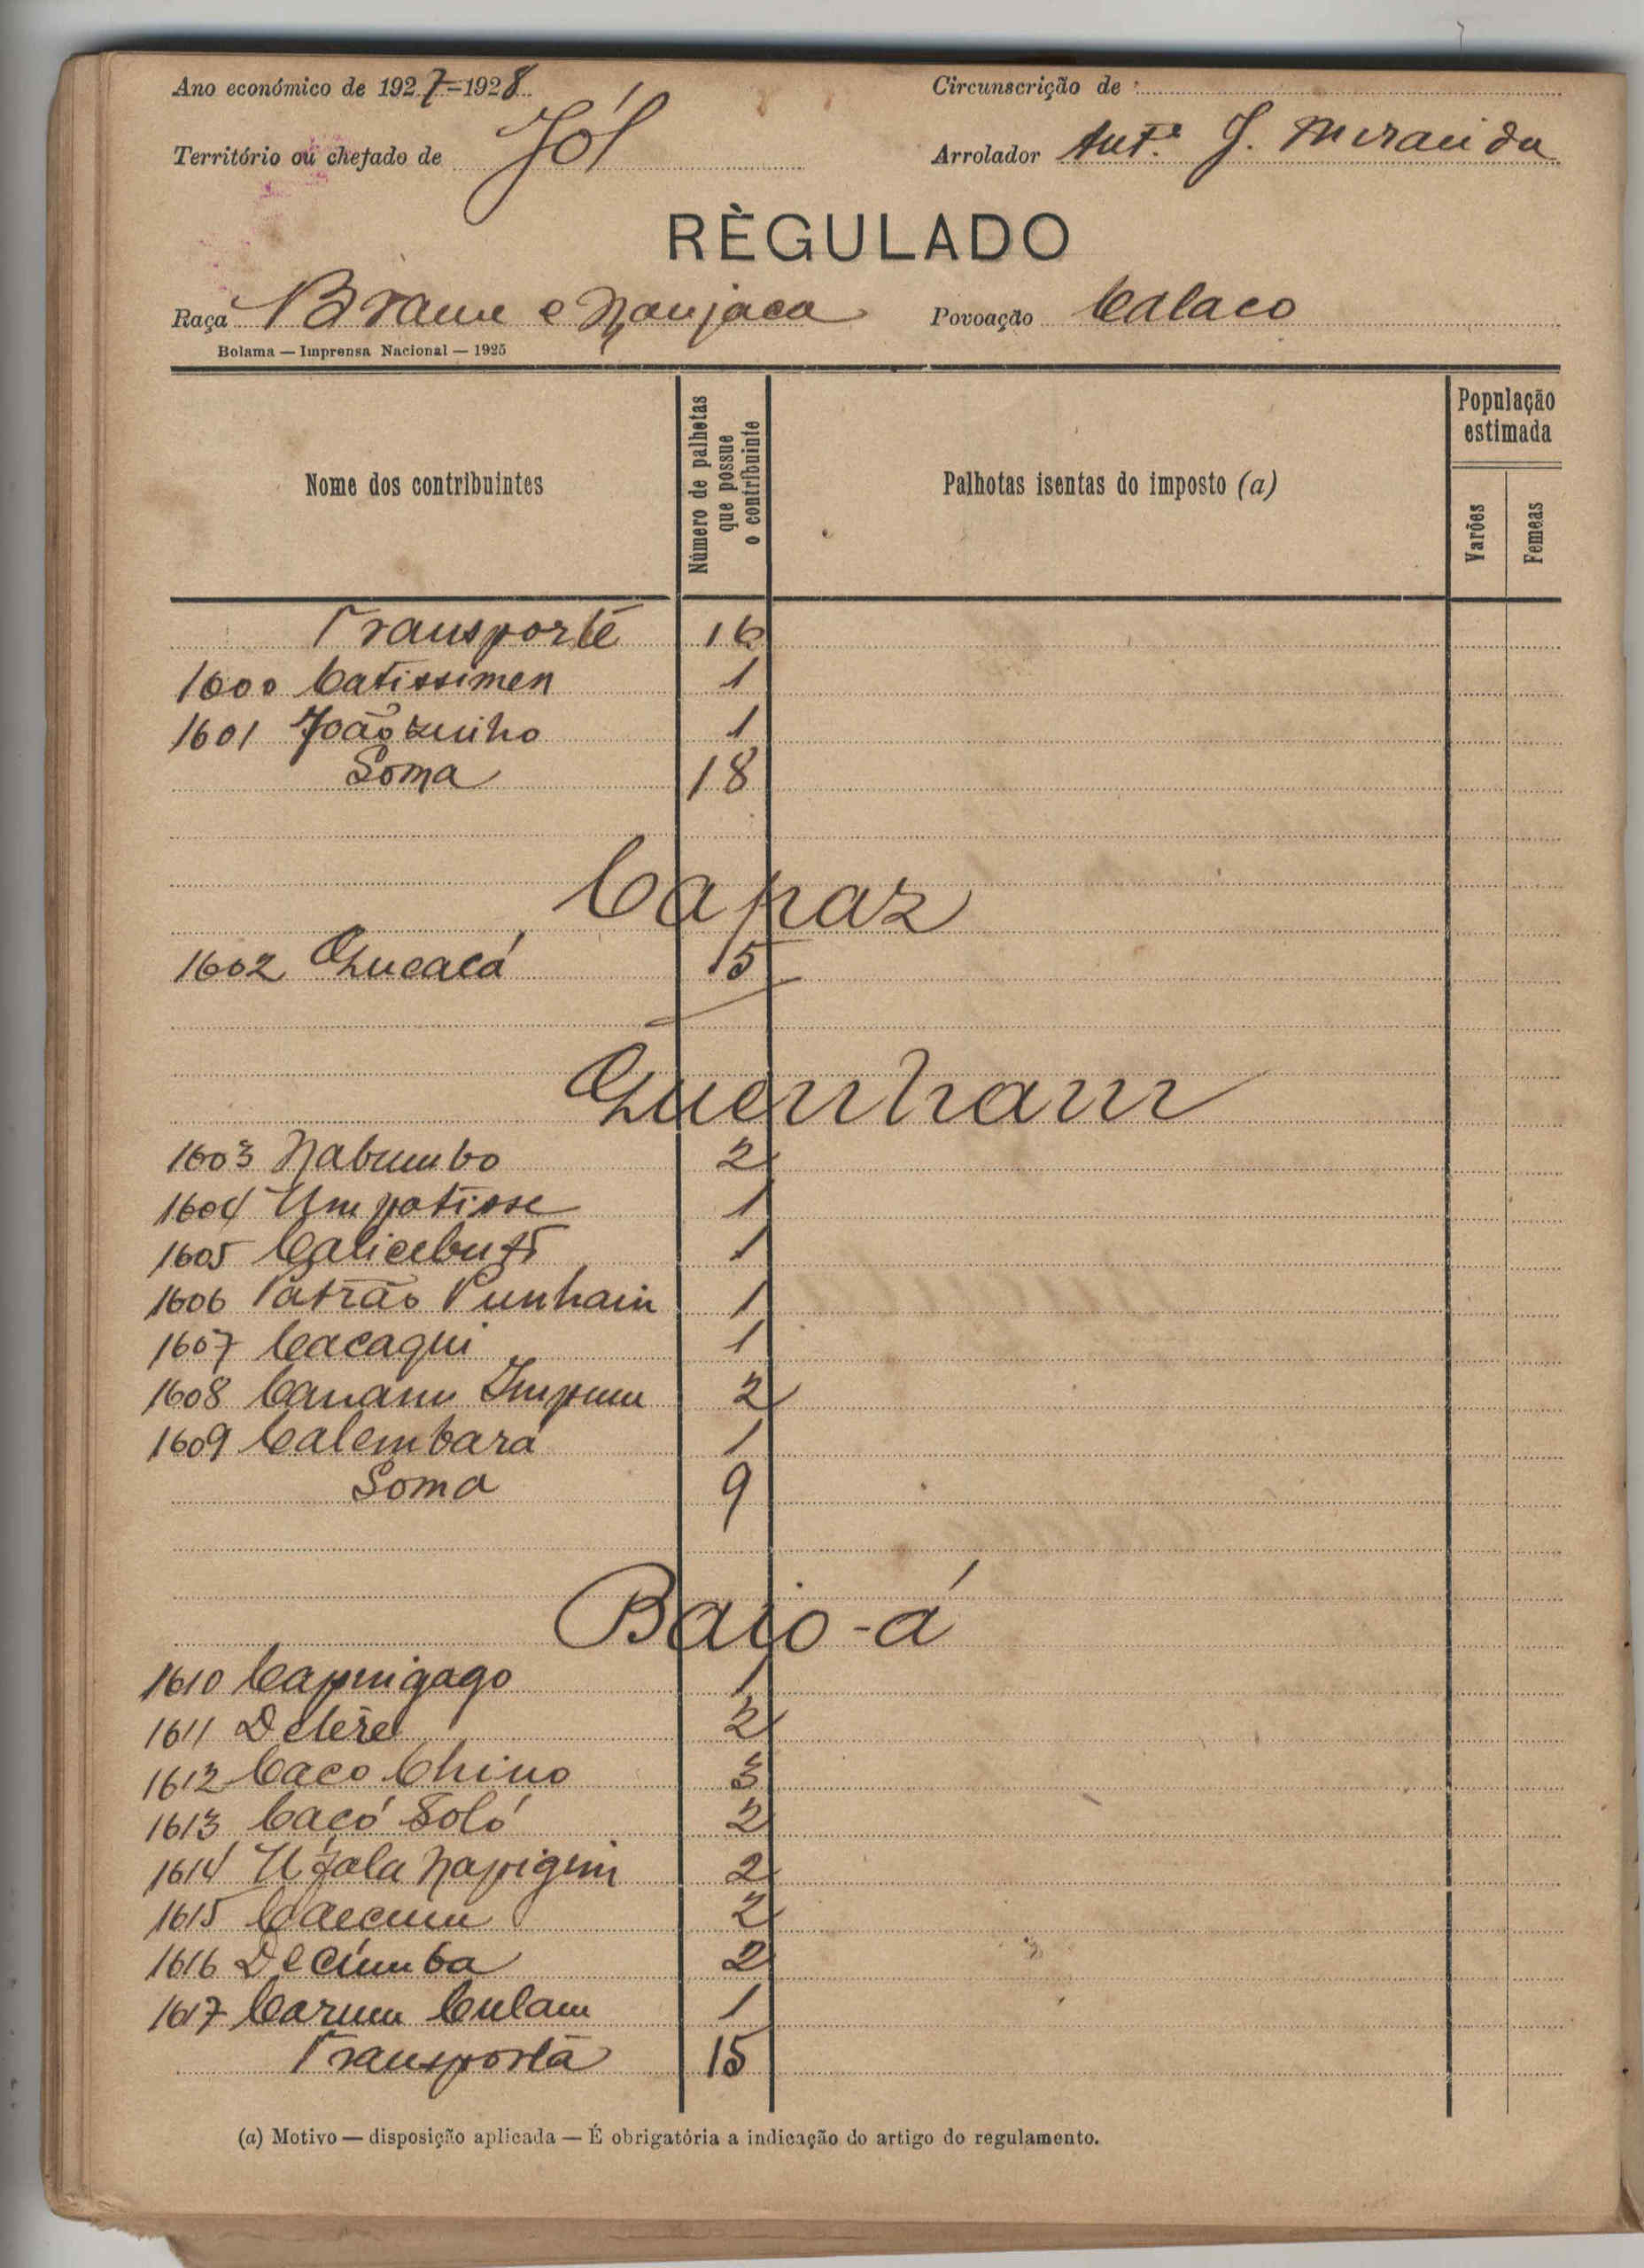 Ano económico de 1927=1928
Circunscrição de
Território ou chefado de Jól
Arrolador Antº J. Miranda
RÈGULADO
Raça Brame e Manjaca
Povoação Calaco
Bolama — Imprensa Nacional — 1925
Nome dos contribuintes
Número de palhetas que possue o contribuinte
Palhotas isentas do imposto (a)
População estimada
Varões
Femeas
Transporte 16
1600 Catissimen 1
1601 Joãozinho 1
Soma 18
Capaz
1602 Quecacá 15
Quenham
1603 Nabumbo 2
1604 Umpatisse 1
1605 1
1606 Patrão Punhain 1
1607 Cacaqui 1
1608 Canam Impum 2
1609 Calembará 1
Soma 9
Baio-á
1610 Capuigago 1
1611 2
1612 Caco Chino 3
1613 Cacó Soló 2
1614 2
1615 Caecum 2
1616 Decumba 2
1617 Carum Culam 1
Transporta 15
(a) Motivo — disposição aplicada — É obrigatória a indicação do artigo do regulamento.